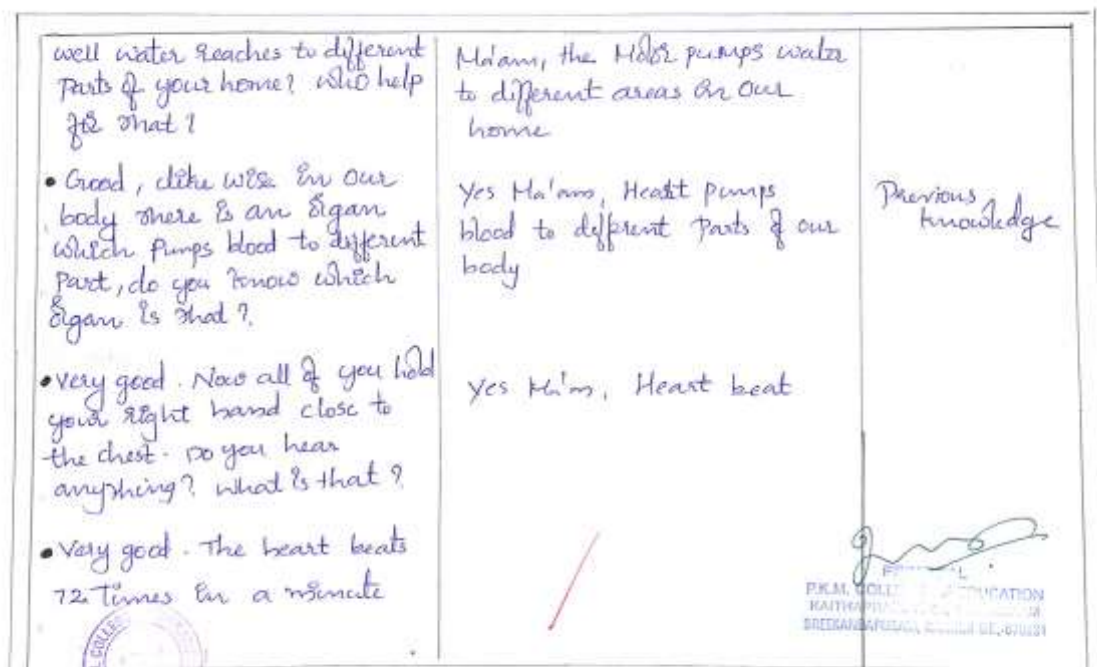 well water reaches to different
Parts of your home? who help
for that?
• Good, like wise in our
body there is an organ
which Pumps blood to different
Part, do you know which
organ is that?
• Very good. Now all of you hold
your right hand close to
the chest. Do you hear
anything? what is that?
• Very good. The heart beats
72 Times in a minute
Ma'am, the Motor pumps water
to different areas in our
home
Yes Ma'am, Heart pumps
blood to different Parts of our
body
Yes Ma'm, Heart beat
Previous
knowledge
P.K.M. COLLEGE OF EDUCATION